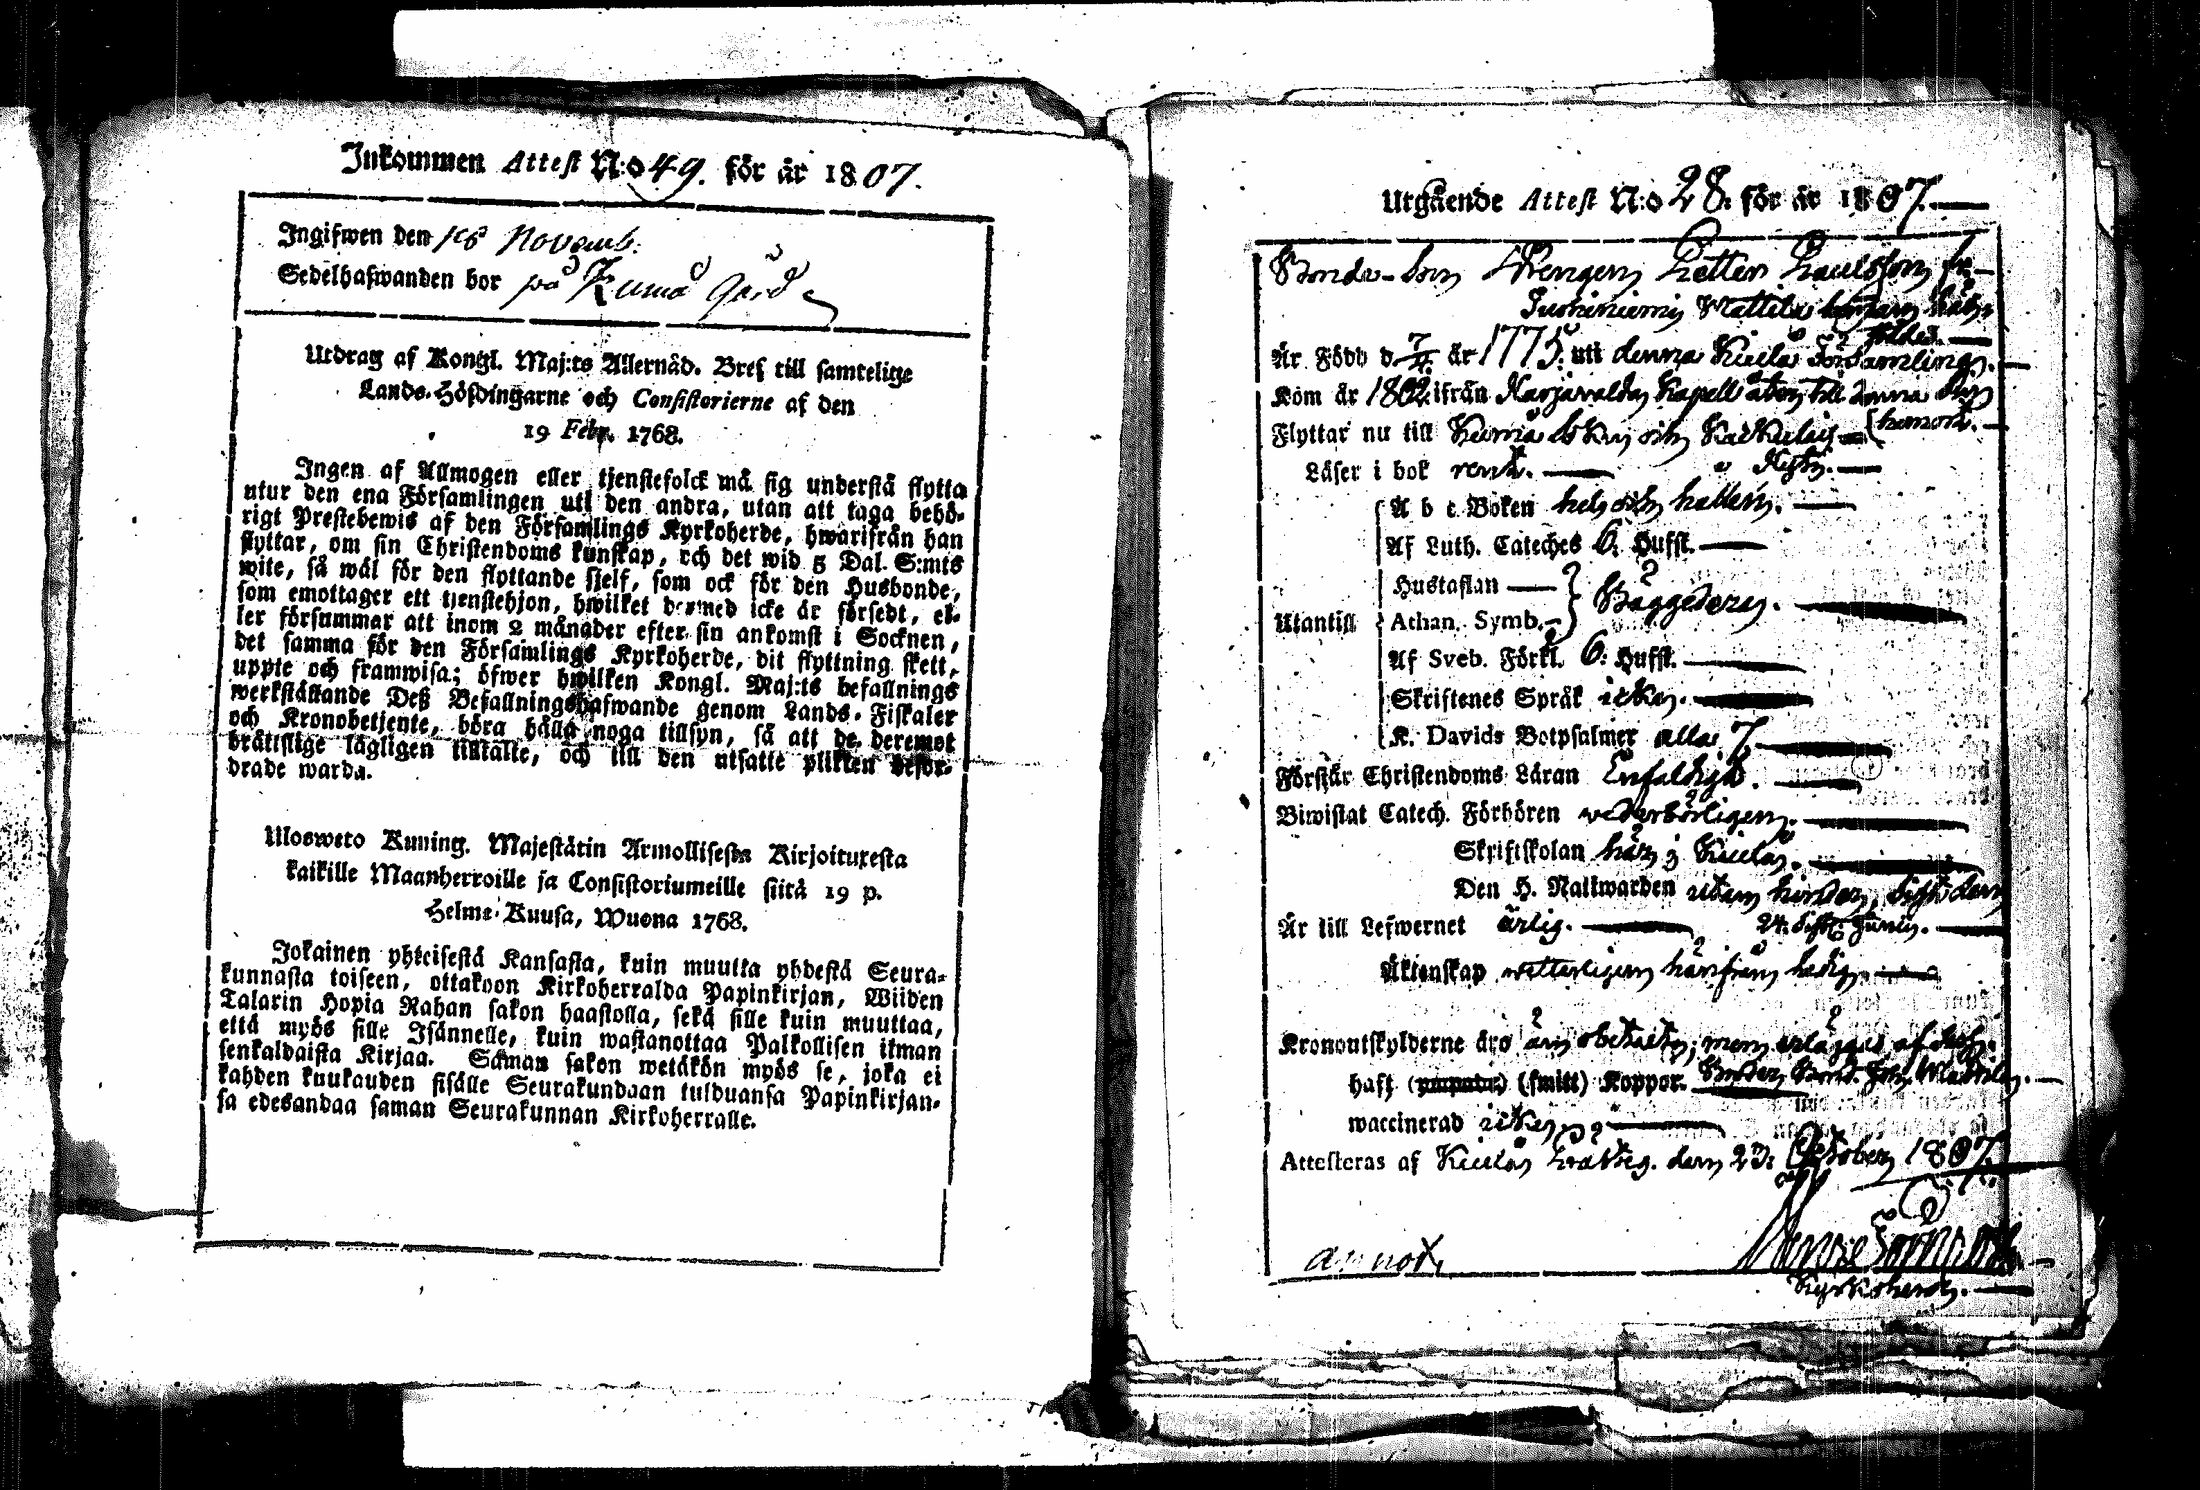 Inkommen Attest N:o 49. för år 1807.
Ingifwen den 1ste Novemb:
Sedelhafwanden bor på Kumå Gård
Utdrag af Kongl. Maj:ts Allernåd. Bref till samtelige
Lands-Höfdingarne och Consistorierne af den
19 Febr. 1768.
Ingen af Allmogen eller tjenstefolck må sig understå flytta
utur den ena Församlingen uti den andra, utan att taga behö-
rigt Prestebewis af den Församlings Kyrkoherde, hwarifrån han
flyttar, om sin Christendoms kunskap, och det wid 5 Dal. S:mts
wite, så wäl för den flyttande sjelf, som ock för den Husbonde,
som emottager ett tjenstehjon, hwilket dermed icke är försedt, el-
ler försummar att inom 2 månader efter sin ankomst i Socknen,
det samma för den Församlings Kyrkoherde, dit flyttning skett,
uppte och framwisa; öfwer hwilken Kongl. Maj:ts befallnings
werkställande Deß Befallningshafwande genom Lands-Fiskaler
och Kronobetjente, böra hålla noga tillsyn, så att de deremot
bråttslige lagligen tilltalte, och till den utsatte plikten befor-
drade warda.
Ulosweto Kuning. Majestätin Armollisesta Kirjoituxesta
kaikille Maanherroille ja Consistoriumeille siitä 19 p.
Helme-Kuusa, Wuona 1768.
Jokainen yhteisestä Kansasta, kuin muutta yhdestä Seura-
kunnasta toiseen, ottakoon Kirkoherralda Papinkirjan, Wiiden
Talarin Hopia Rahan sakon haastolla, sekä sille kuin muuttaa,
että myös sille Isännelle, kuin wastanottaa Palkollisen ilman
senkaldaista Kirjaa. Saman sakon wetäkön myös se, joka ei
kahden kuukauden sisälle Seurakundaan tulduansa Papinkirjan-
sa edesandaa saman Seurakunnan Kirkoherralle.
Utgående Attest N:o 28. för år 1807.
Bonde-Son Drengen Petter Paulsson fr.
Mattila
Är Född d. 7/ år 1775. uti denna Kiulo Församling.
Kom år 1802. ifrån Karjavalda Kapell till denna Sin
hemort.
Flyttar nu till Kumå
Läser i bok rent.
A b c Boken hel och hållen.
Af Luth. Cateches 6. Hufst.
Hustaflan
Utantill Athan. Symb. Bäggedera.
Af Sveb. Förkl. 6. Hufst.
Skriftenes Språk icke.
K. Davids Botpsalmer alla 7.
Förstår Christendoms Läran Enfaldigt.
Biwistat Catech. Förhören wederbörligen.
Skriftskolan här i Kiulo.
Den H. Nattwarden utan hinder, sist den
24. Junii.
Är till Lefwernet ärlig.
Äktenskap wetterligen härifrån ledig.
Kronoutskylderne äro än obetalte, men erlägges af deß
haft (ympade) (smitt) Koppor. Broder Bond.
waccinerad icke
Attesteras af Kiulo Prästeg. den 23. October 1807.
annot.
Kyrkoherde.